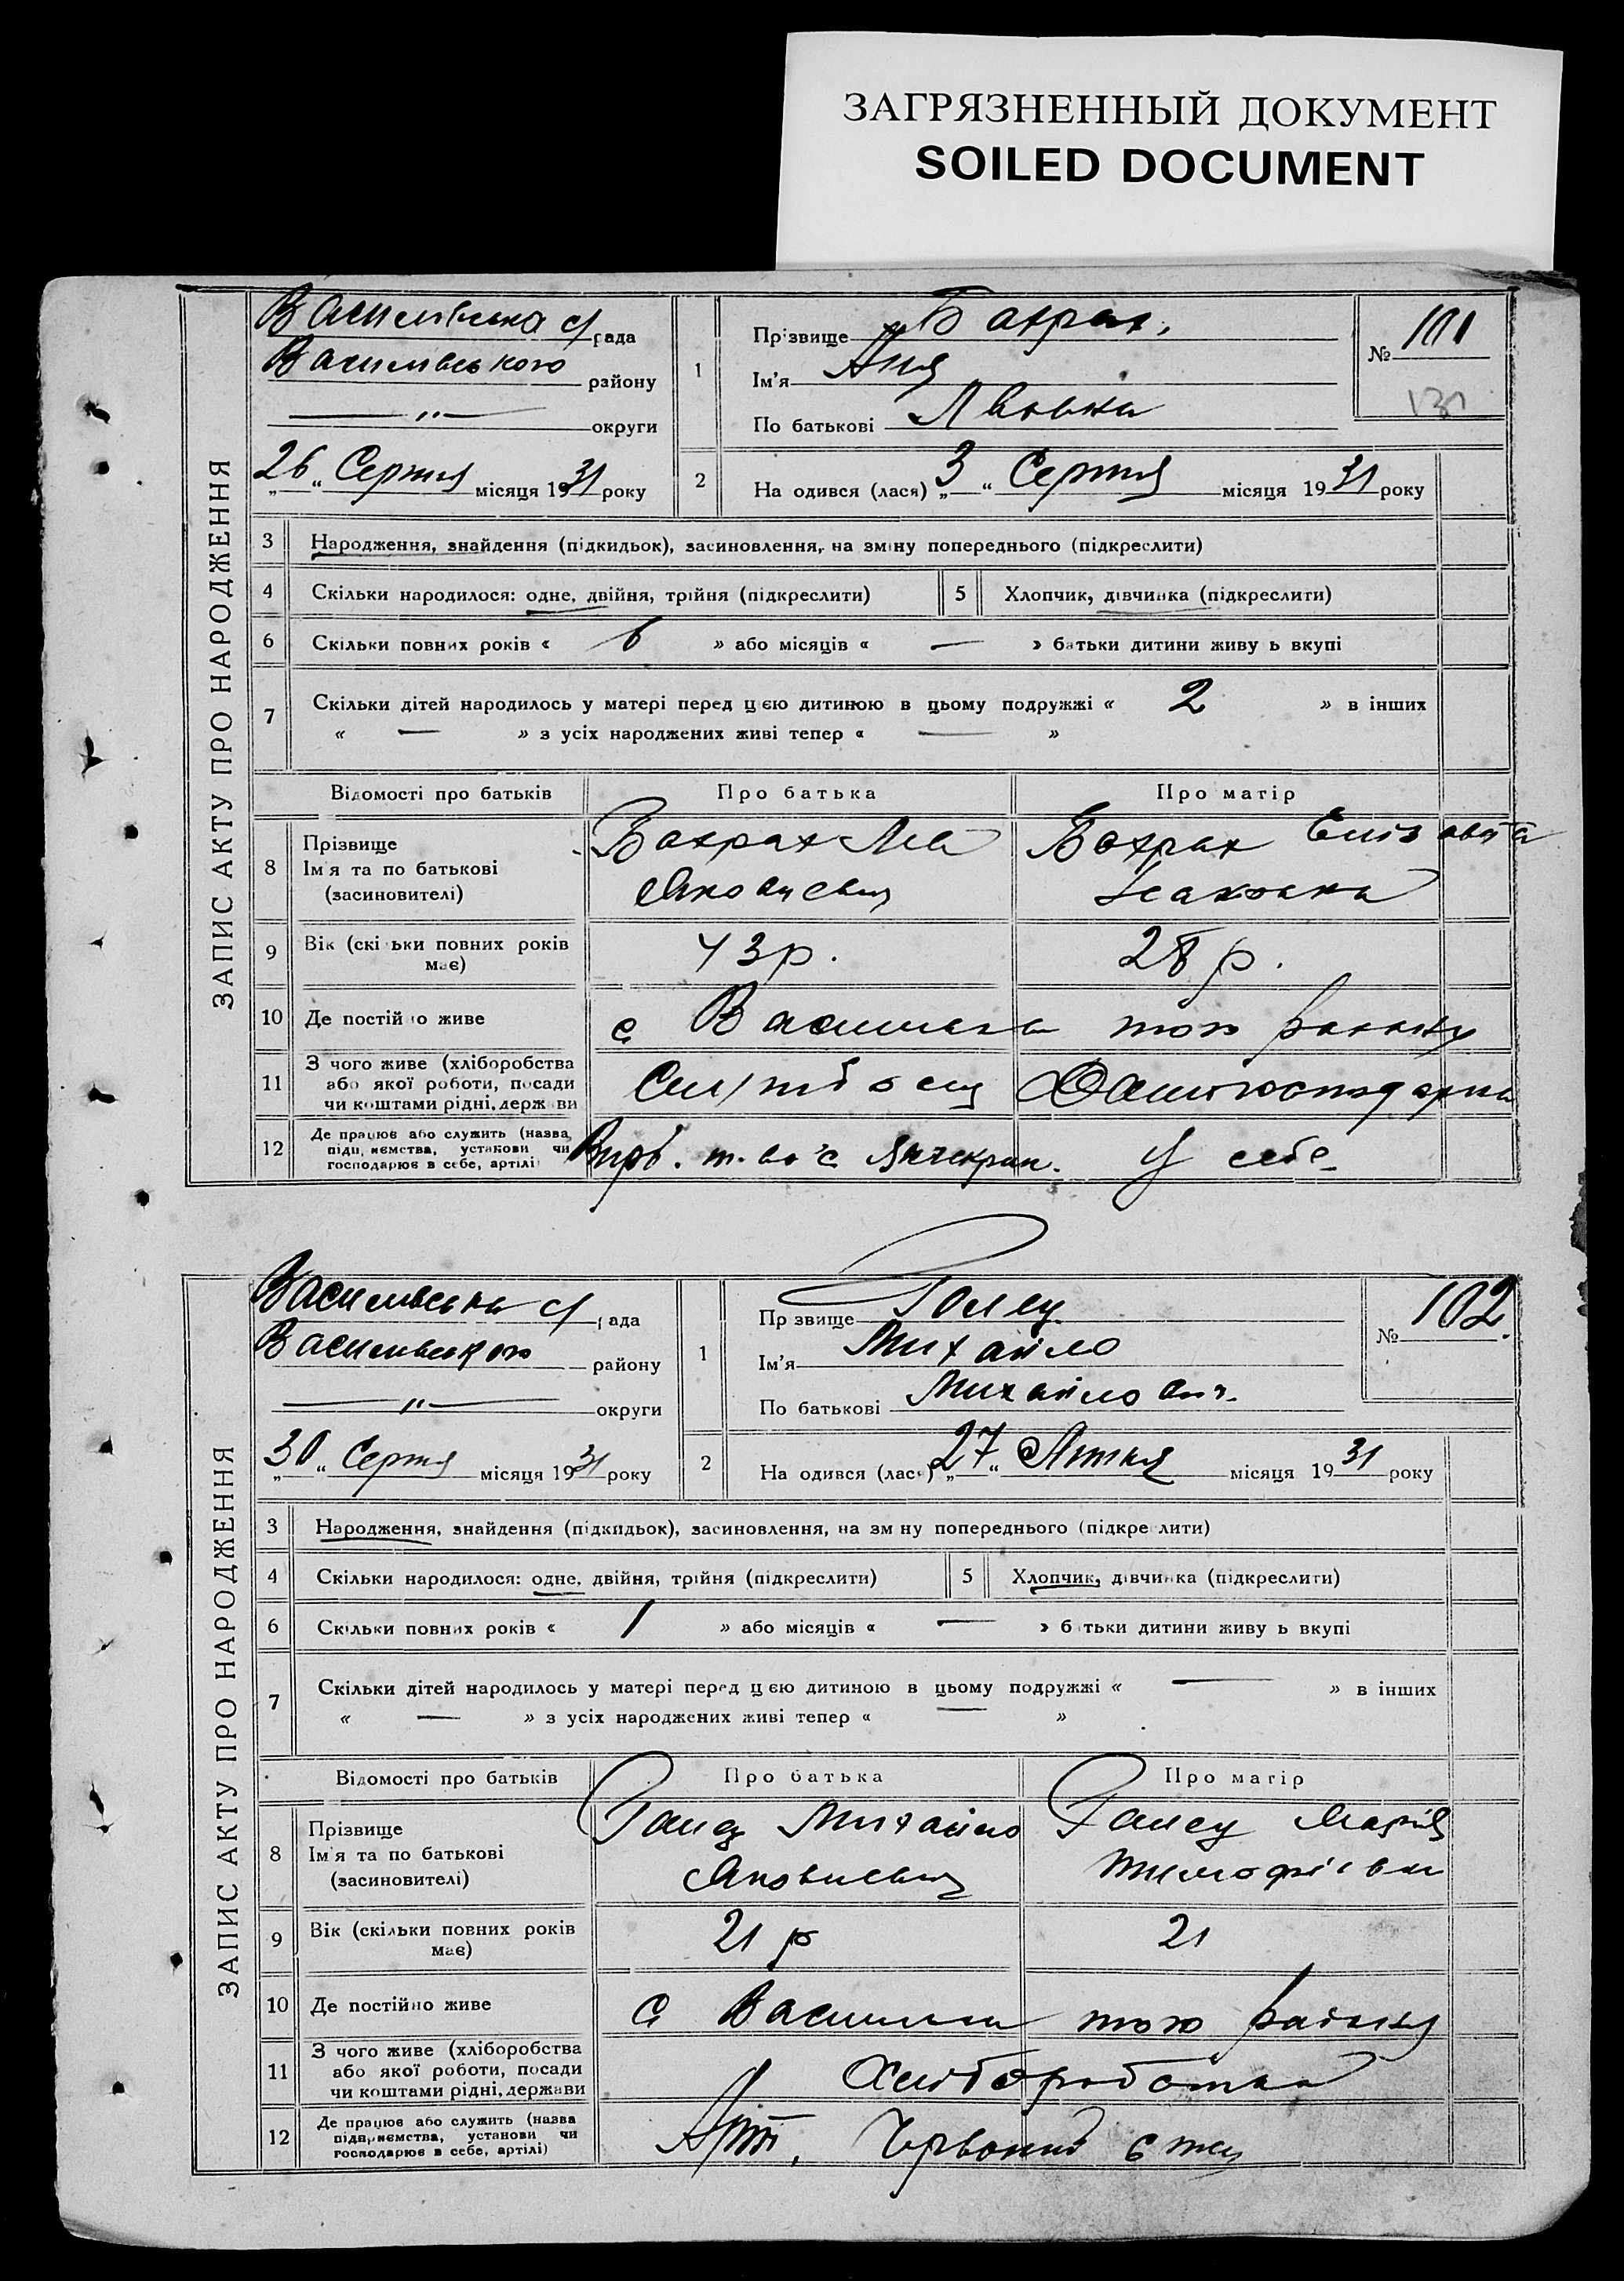 ЗАГРЯЗНЕННЫЙ ДОКУМЕНТ
SOILED DOCUMENT
ЗАПИС АКТУ ПРО НАРОДЖЕННЯ
Василівська с/рада
Василівського району
—"— округи
„26“ Серпня місяця 1931 року
1
Прізвище Бахрах
Ім'я Аня
По батькові Львовна
№ 101
131
2
На одився (лася) „3“ Серпня місяця 1931 року
3 Народження, знайдення (підкидьок), засиновлення, на зміну попереднього (підкреслити)
4 Скільки народилося: одне, двійня, трійня (підкреслити)
5 Хлопчик, дівчинка (підкреслити)
6 Скільки повних років « 6 » або місяців « — » батьки дитини живу ь вкупі
7 Скільки дітей народилось у матері перед цією дитиною в цьому подружжі « 2 » в інших
« — » з усіх народжених живі тепер « — »
Відомості про батьків Про батька Про матір
8 Прізвище
Ім'я та по батькові
(засиновителі)
Бахрах Лев
Бахрах Єлізавета
Ісаковна
9 Вік (скі ьки повних років
має)
43 р.
28 р.
10 Де постійно живе
с Василівка того району
11 З чого живе (хліборобства
або якої роботи, посади
чи коштами рідні, держави
Домогосподарка
12 Де працює або служить (назва
підприємства, установи чи
господарює в себе, артілі)
У себе
ЗАПИС АКТУ ПРО НАРОДЖЕННЯ
Василівська с/рада
Василівського району
—"— округи
„30“ Серпня місяця 1931 року
1
Пр звище
Ім'я Михайло
По батькові Михайлович
№ 102
2
На одився (лася) „27“ Липня місяця 1931 року
3 Народження, знайдення (підкидьок), засиновлення, на зм ну попереднього (підкре лити)
4 Скільки народилося: одне, двійня, трійня (підкреслити)
5 Хлопчик, дівчинка (підкреслити)
6 Скільки повних років « 1 » або місяців « — » б тьки дитини живу ь вкупі
7 Скільки дітей народилось у матері перед цією дитиною в цьому подружжі « — » в інших
« — » з усіх народжених живі тепер « — »
Відомості про батьків Про батька Про матір
8 Прізвище
Ім'я та по батькові
(засиновителі)
Михайло
Марія
Тимофіївна
9 Вік (скільки повних років
має)
21 р
21
10 Де постійно живе
с Василівка того району
11 З чого живе (хліборобства
або якої роботи, посади
чи коштами рідні, держави
Хліборобства
12 Де працює або служить (назва
підприємства, установи чи
господарює в себе, артілі)
Арт. Червоний